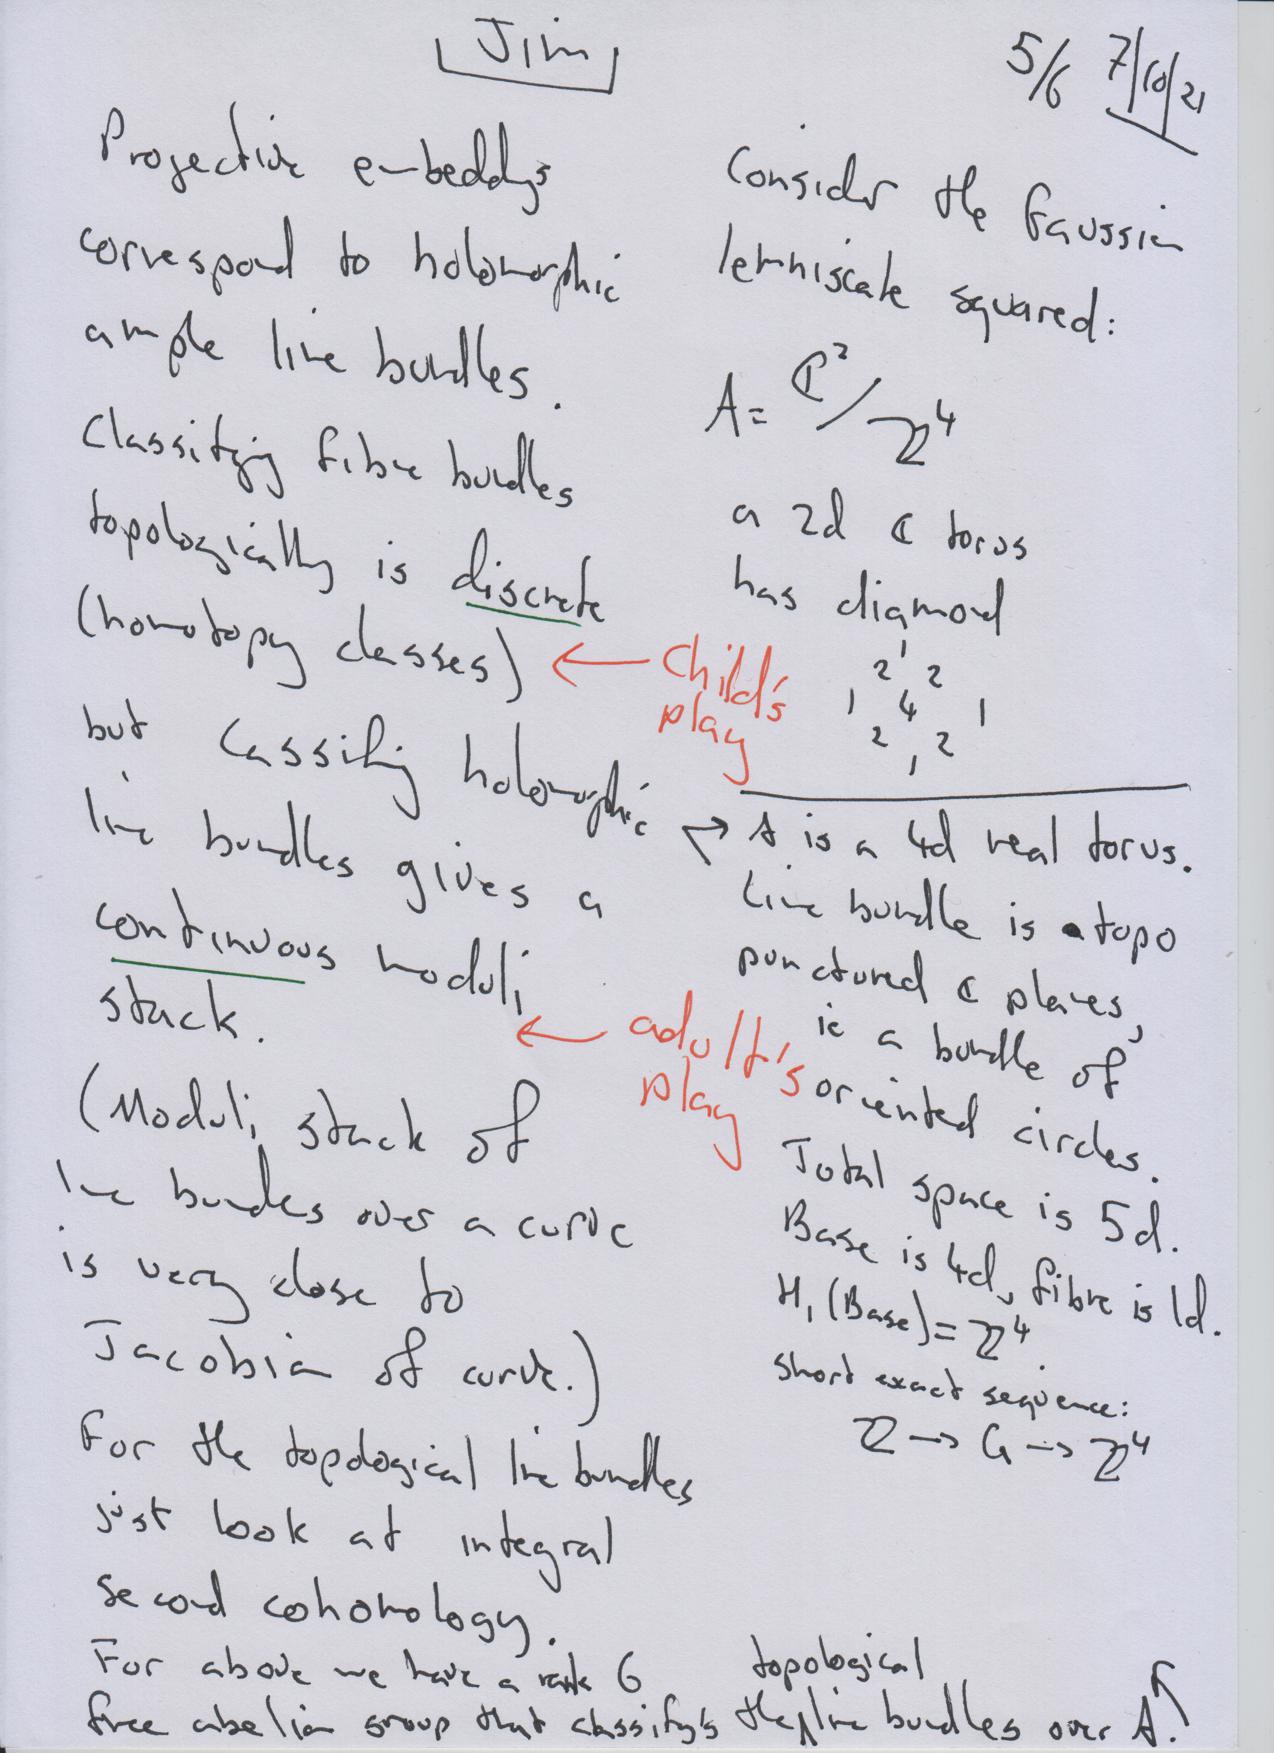 Jim
5/6 7/10/21
Projective embeddgs
correspond to holomorphic
ample line bundles.
Classifying fibre bundles
topologically is discrete
(homotopy classes) ← Child's
play
but classifing holomorphic
line bundles gives a
continuous moduli
stack.
← adult's
play
(Moduli stack of
line bundles over a curve
is very close to
Jacobian of curve.)
For the topological line bundles
just look at integral
second cohomology.
For above we have a rank 6
free abelian group that classify's the topological line bundles over A.
Consider the Gaussian
lemniscate squared:
A = ℂ²/ℤ⁴
a 2d ℂ torus
has diamond
1
2 2
1 4 1
2 2
1
→ A is a 4d real torus.
Line bundle is topo
punctured ℂ planes,
ie a bundle of
oriented circles.
Total space is 5d.
Base is 4d, fibre is 1d.
H₁(Base) = ℤ⁴.
short exact sequence:
ℤ → G → ℤ⁴